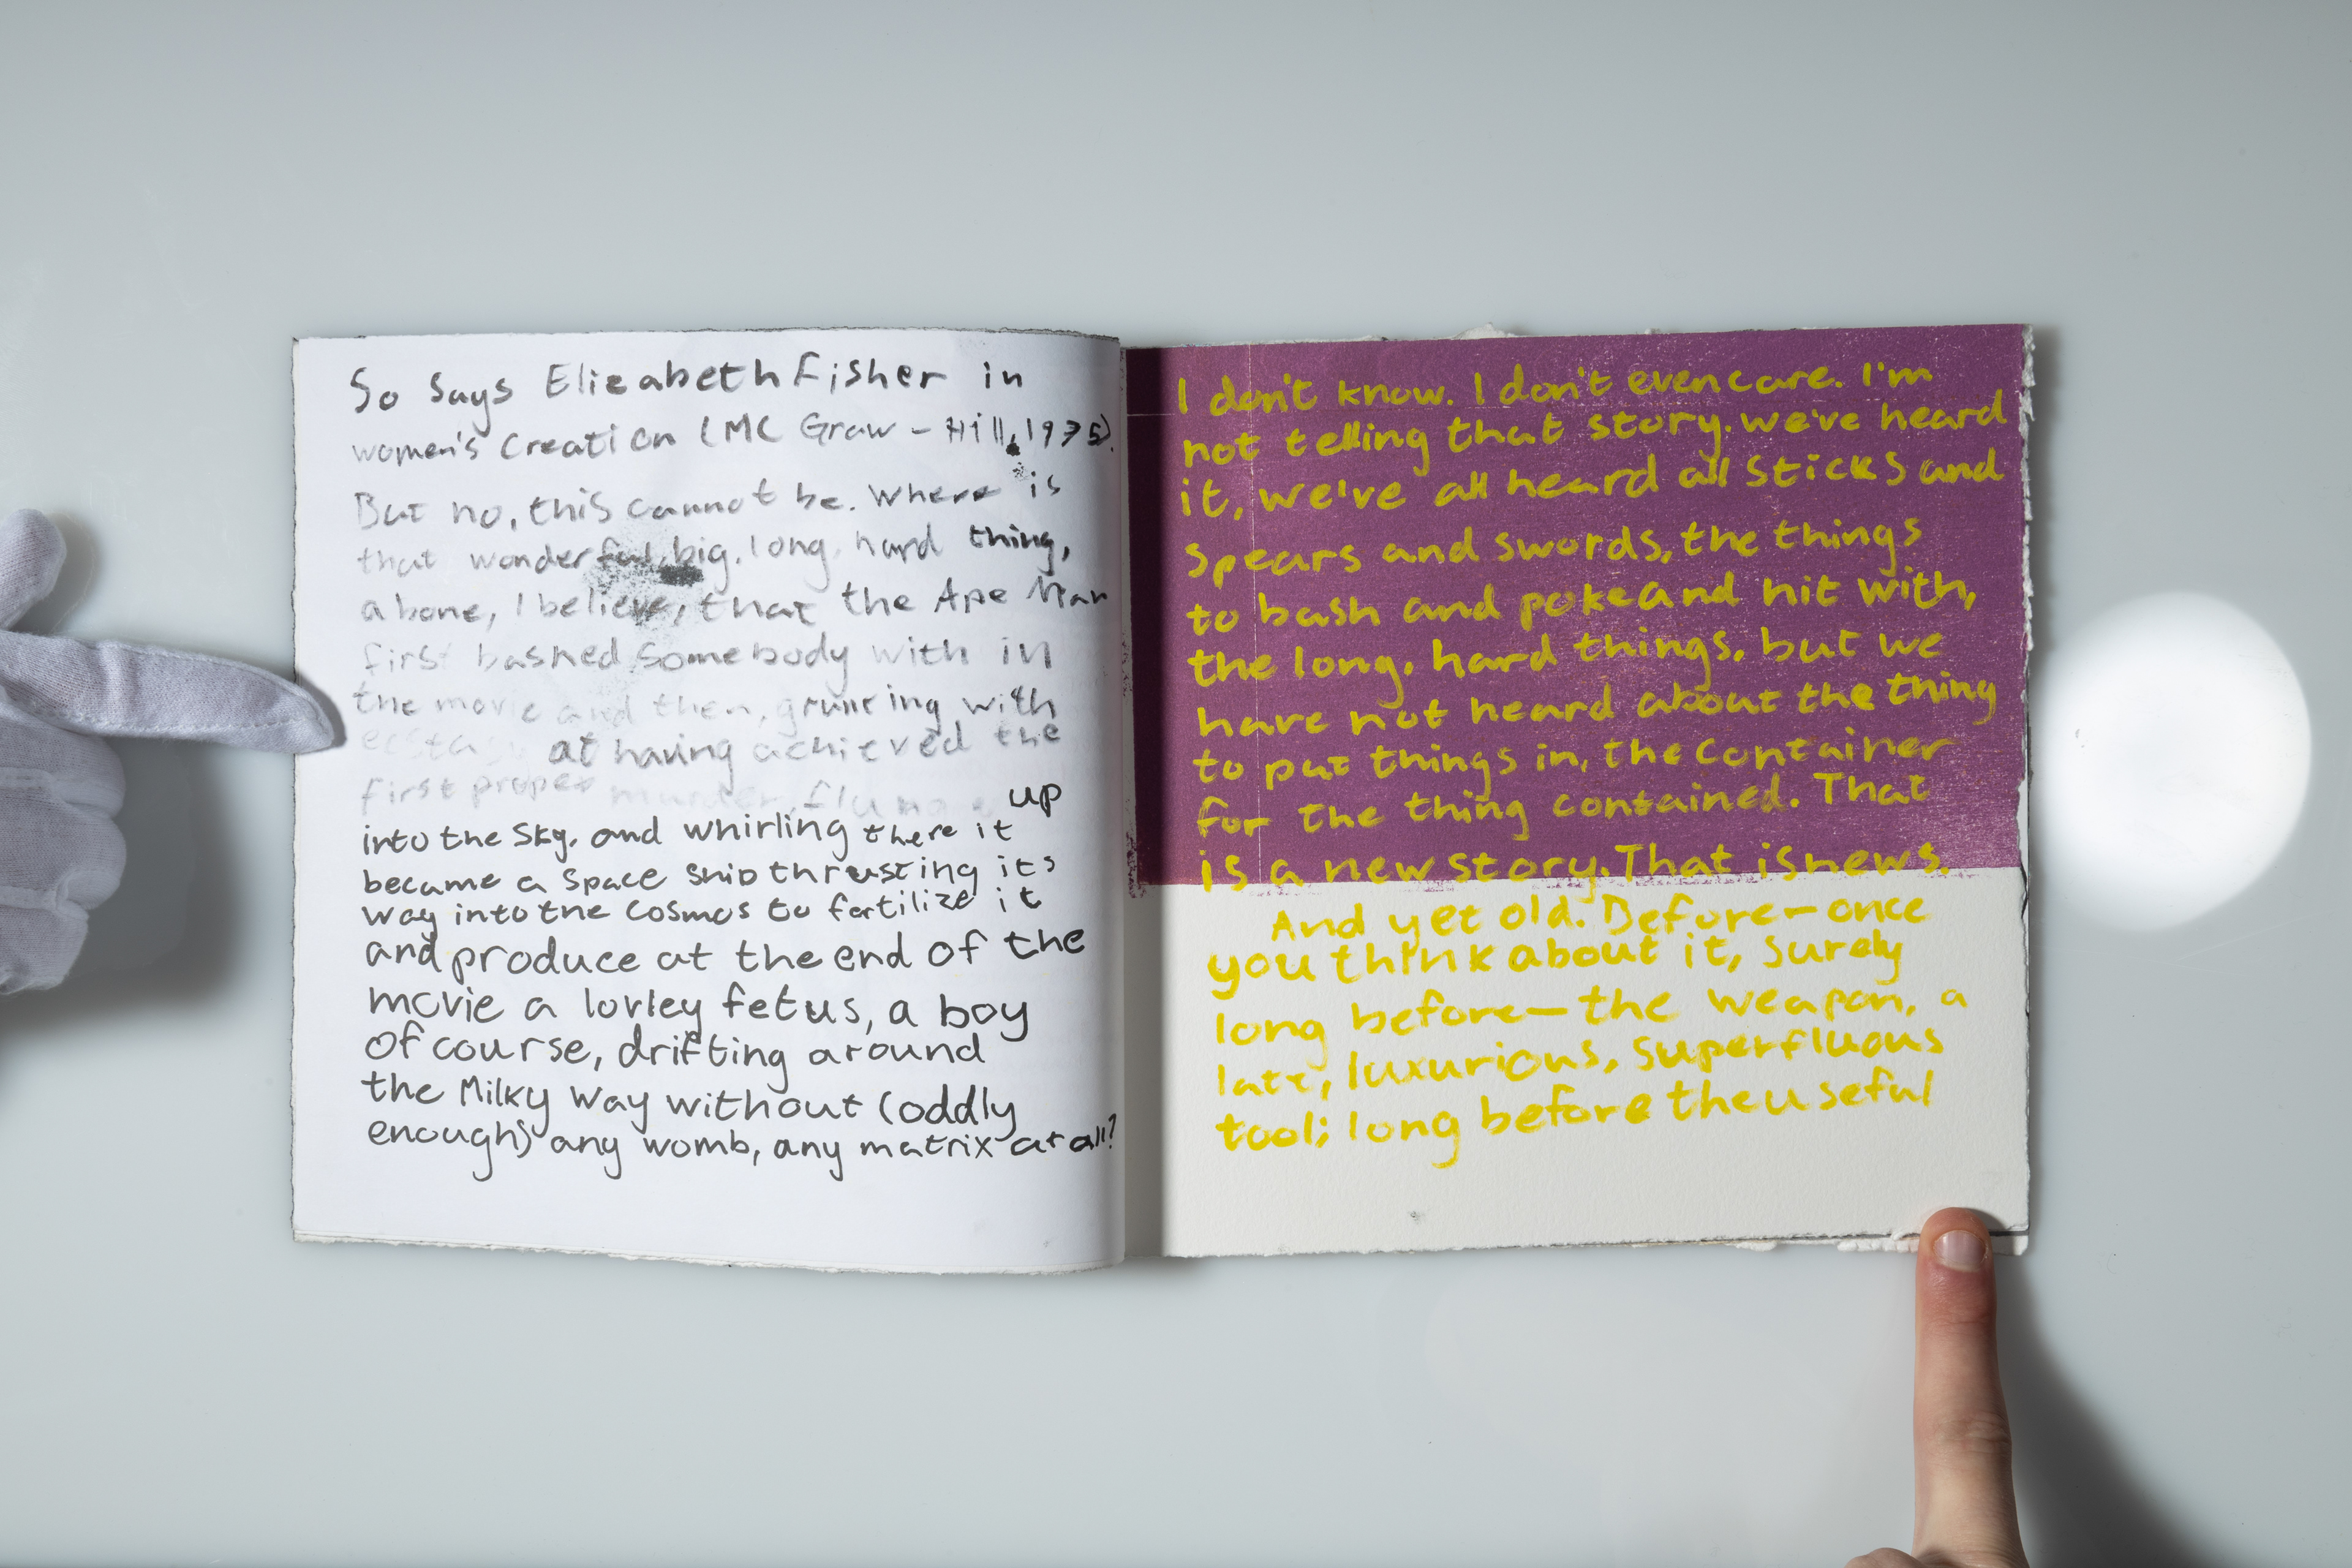 So Says Elizabeth Fisher in
women's Creation (MC Graw - Hill, 1975).
But no, this cannot be. Where is
that wonderful, big, long, hard thing,
a bone, I believe, that the Ape Man
first bashed somebody with in
the movie and then, grunting with
ecstasy at having achieved the
first proper murder, flung up
into the Sky, and whirling there it
became a Space Ship thrusting its
way into the Cosmos to fertilize it
and produce at the end of the
movie a lovley fetus, a boy
of course, drifting around
the Milky Way without (oddly
enough) any womb, any matrix at all?
I don't know. I don't even care. I'm
not telling that story. we've heard
it, we've all heard all Sticks and
Spears and swords, the things
to bash and poke and hit with,
the long, hard things, but we
have not heard about the thing
to put things in, the container
for the thing contained. That
is a new story. That is news.
And yet old. Before—once
you think about it, surely
long before—the weapon, a
late, luxurious, superfluous
tool; long before the useful